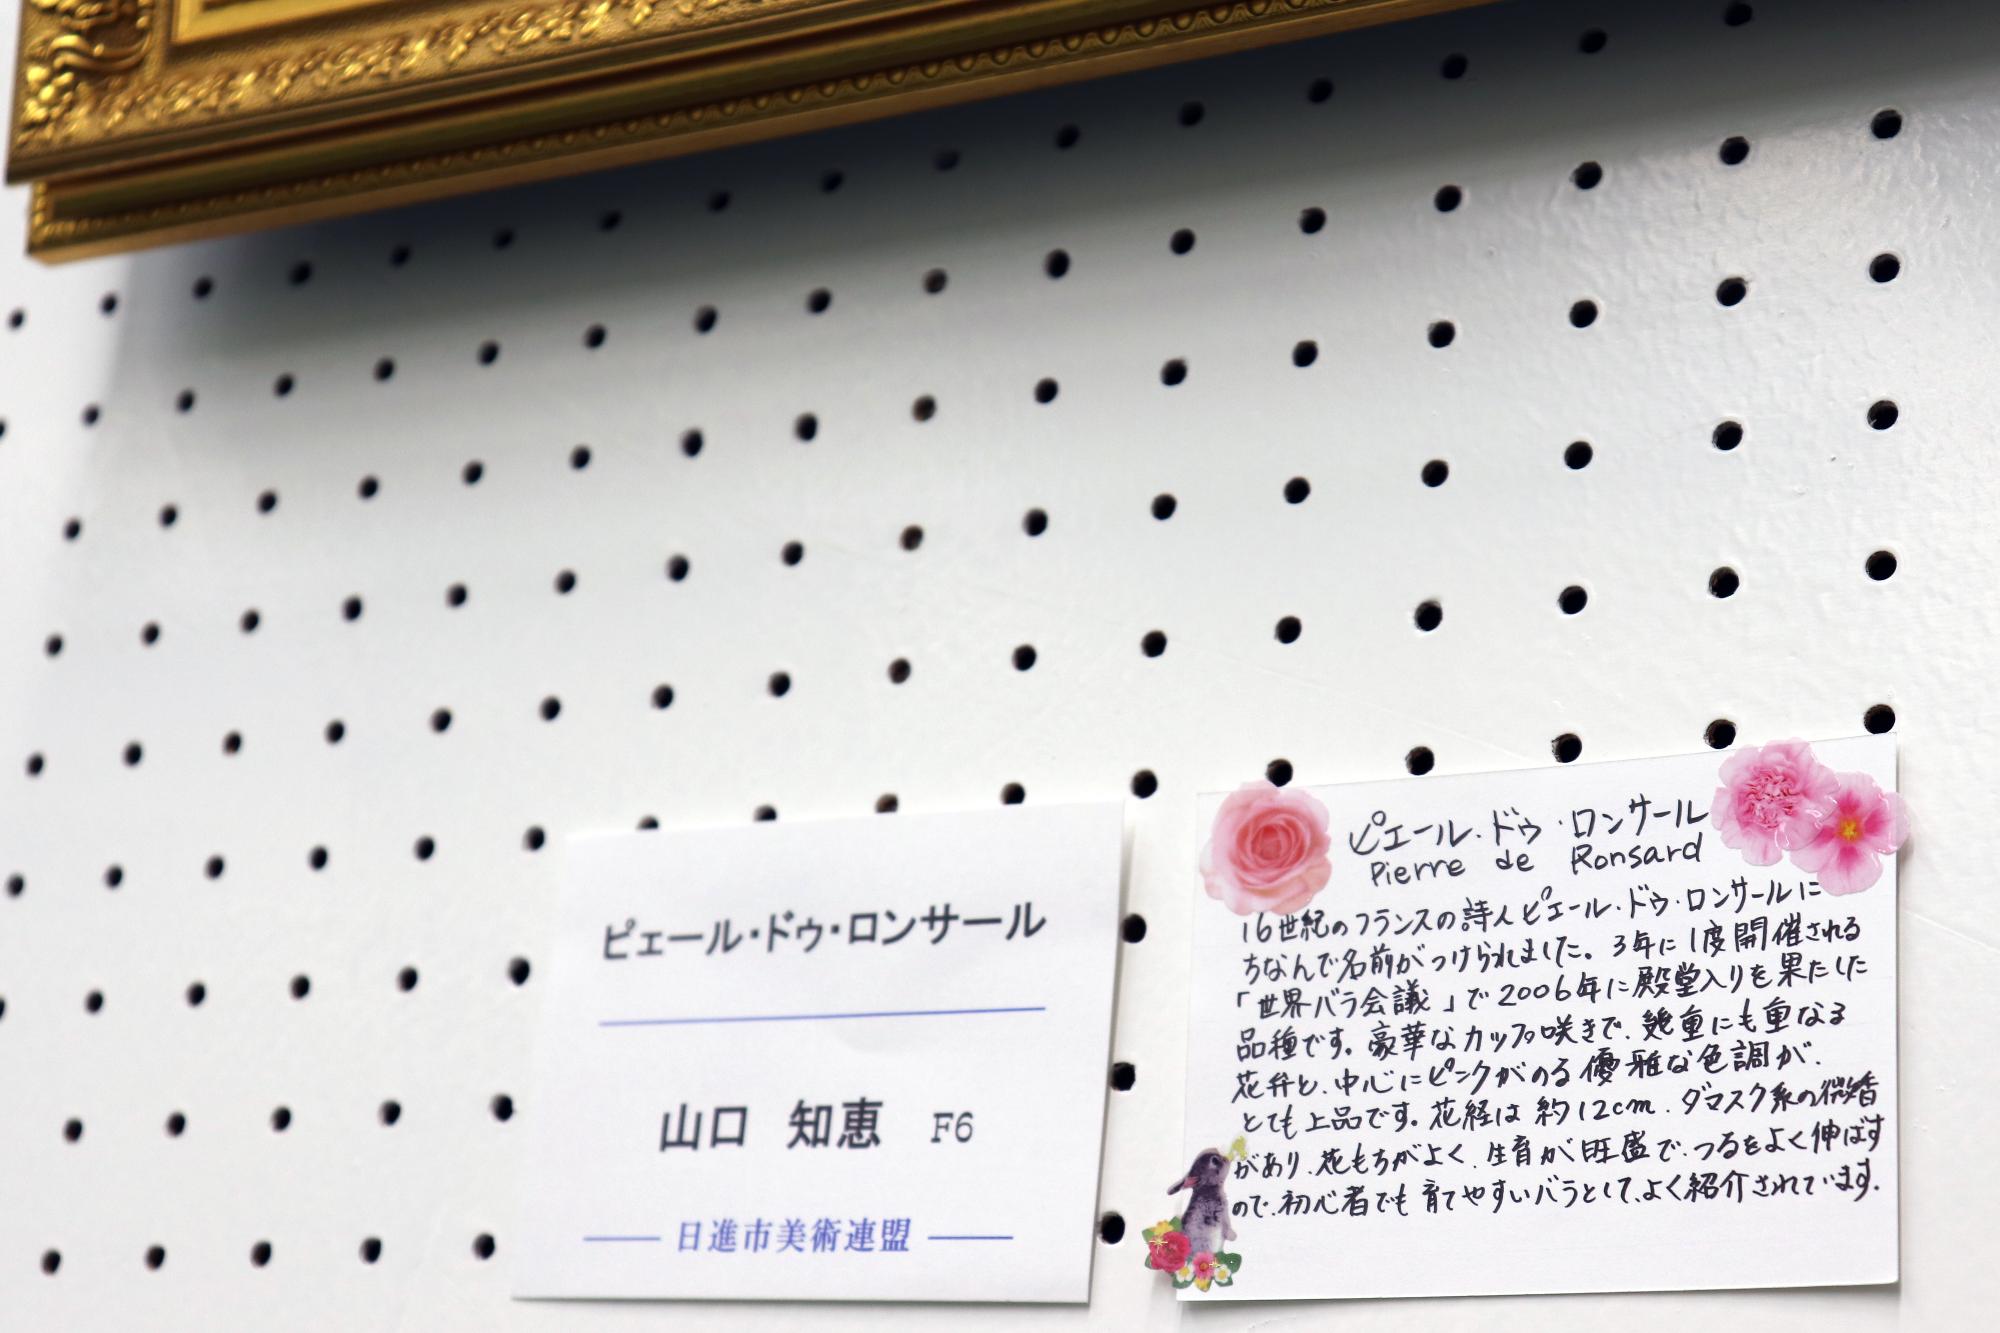 ピェール・ドゥ・ロンサール
山口 知恵 F6
日進市美術連盟
ピエール・ドゥ・ロンサール
Pierre de Ronsard
16世紀のフランスの詩人ピエール・ドゥ・ロンサールに
ちなんで名前がつけられました。3年に1度開催される
「世界バラ会議」で2006年に殿堂入りを果たした
品種です。豪華なカップ咲きで、幾重にも重なる
花弁と、中心にピンクがのる優雅な色調が、
とても上品です。花経は約12cm、ダマスク系の微香
があり、花もちがよく、生育が旺盛で、つるをよく伸ばす
ので、初心者でも育てやすいバラとして、よく紹介されています。